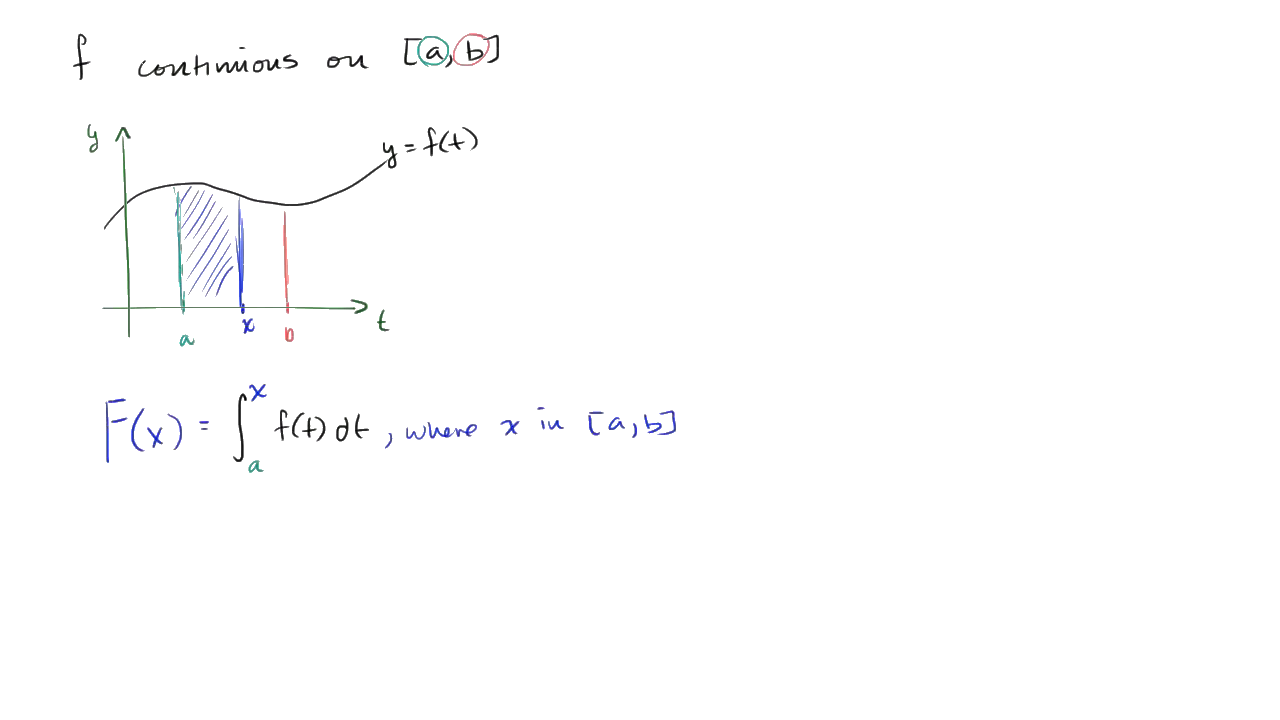 f continious on [a, b]
y
y = f(t)
a
x
b
t
F(x) = ∫_a^x f(t) dt, where x in [a, b]